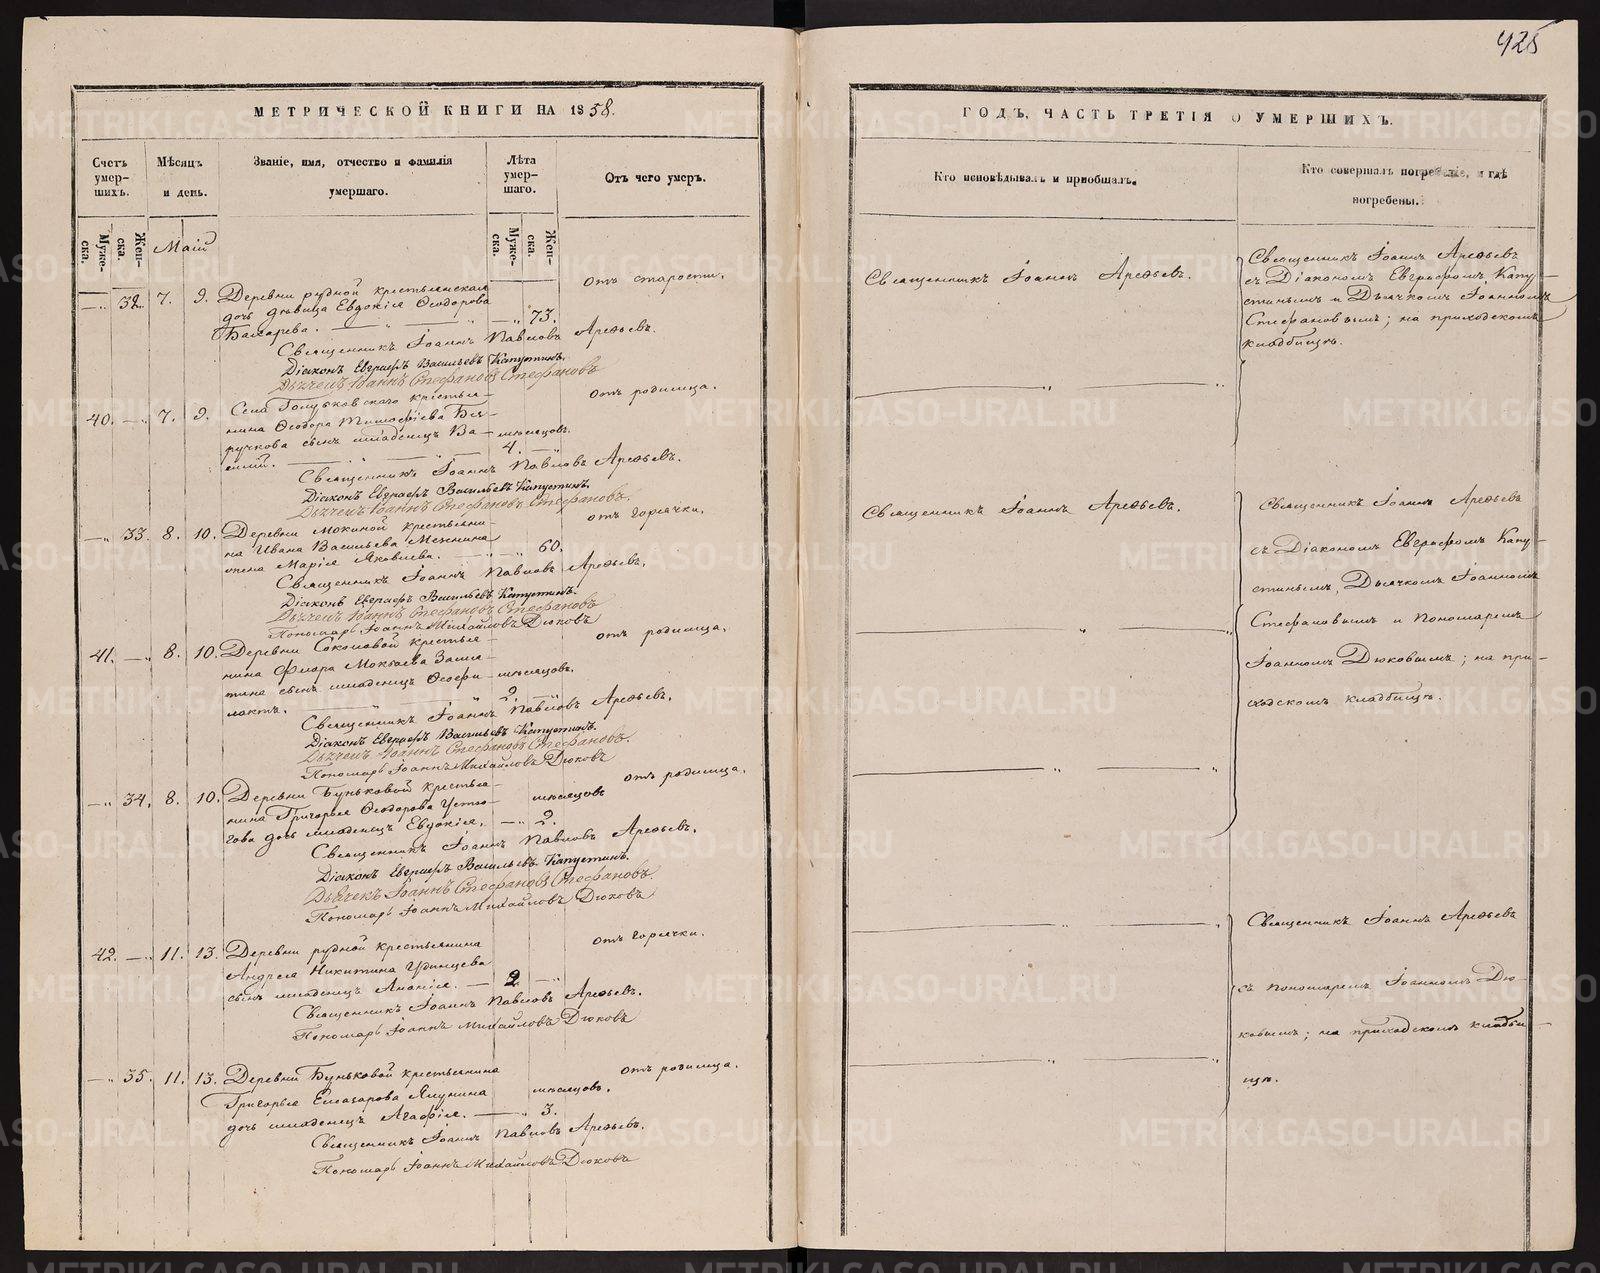 425
МЕТРИЧЕСКОЙ КНИГИ НА 1858.
Счетъ умер-шихъ.
Мѣсяцъ и день.
Званіе, имя, отчество и фамилія умершаго.
Лѣта умер-шаго.
Отъ чего умеръ.
Муже-ска.
Жен-ска.
Муже-ска.
Жен-ска.
Маій
32. 7. 9. Деревни рудной крестьянская
дочь дѣвица Евдокія Ѳеодорова
73.
отъ старости.
Священникъ Іоаннъ Павловъ Арефьевъ.
Діаконъ Евграфъ Васильевъ Капустинъ.
Дьячекъ Іоаннъ Стефановъ Стефановъ
40. 7. 9. Села крестья-
нина Ѳеодора Тимофіева Бе-
ручкова сынъ младенецъ Ва-
силій.
мѣсяцовъ.
4.
отъ родимца.
Священникъ Іоаннъ Павловъ Арефьевъ.
Діаконъ Евграфъ Васильевъ Капустинъ.
Дьячекъ Іоаннъ Стефановъ Стефановъ.
33. 8. 10. Деревни Мокиной крестьяни-
на Ивана Васильева
жена Марія Яковлева.
60.
отъ горячки.
Священникъ Іоаннъ Павловъ Арефьевъ.
Діаконъ Евграфъ Васильевъ Капустинъ.
Дьячекъ Іоаннъ Стефановъ Стефановъ
Пономарь Іоаннъ Михайловъ Дюковъ
41. 8. 10. Деревни Соколовой крестья-
нина Флора Мокѣева
сынъ младенецъ Ѳеофи-
лактъ.
мѣсяцовъ.
2.
отъ родимца.
Священникъ Іоаннъ Павловъ Арефьевъ.
Діаконъ Евграфъ Васильевъ Капустинъ.
Дьячекъ Іоаннъ Стефановъ Стефановъ.
Пономарь Іоаннъ Михайловъ Дюковъ
34. 8. 10. Деревни Буньковой крестья-
нина Григорья Ѳеодорова Устю-
гова дочь младенецъ Евдокія.
мѣсяцовъ
2.
отъ родимца.
Священникъ Іоаннъ Павловъ Арефьевъ.
Діаконъ Евграфъ Васильевъ Капустинъ.
Дьячекъ Іоаннъ Стефановъ Стефановъ.
Пономарь Іоаннъ Михайловъ Дюковъ
42. 11. 13. Деревни рудной крестьянина
Андрея Никитина Удинцева
сынъ младенецъ Ананія.
2
отъ горячки.
Священникъ Іоаннъ Павловъ Арефьевъ.
Пономарь Іоаннъ Михайловъ Дюковъ
35. 11. 13. Деревни Буньковой крестьянина
Григорья Елеазарова Ялунина
дочь младенецъ Агафія.
мѣсяцовъ.
3.
отъ родимца.
Священникъ Іоаннъ Павловъ Арефьевъ.
Пономарь Іоаннъ Михайловъ Дюковъ
ГОДЪ, ЧАСТЬ ТРЕТІЯ О УМЕРШИХЪ.
Кто исповѣдывалъ и пріобщалъ.
Кто совершалъ погребеніе, и гдѣ погребены.
Священникъ Іоаннъ Арефьевъ.
Священникъ Іоаннъ Арефьевъ
съ Діакономъ Евграфомъ Капу-
стинымъ и Дьячкомъ Іоанномъ
Стефановымъ; на приходскомъ
кладбищѣ.
Священникъ Іоаннъ Арефьевъ.
Священникъ Іоаннъ Арефьевъ
съ Діакономъ Евграфомъ Капу-
стинымъ, Дьячкомъ Іоанномъ
Стефановымъ и Пономаремъ
Іоанномъ Дюковымъ; на при-
ходскомъ кладбищѣ.
Священникъ Іоаннъ Арефьевъ
съ Пономаремъ Іоанномъ Дю-
ковымъ; на приходскомъ кладби-
щѣ.
METRIKI.GASO-URAL.RU